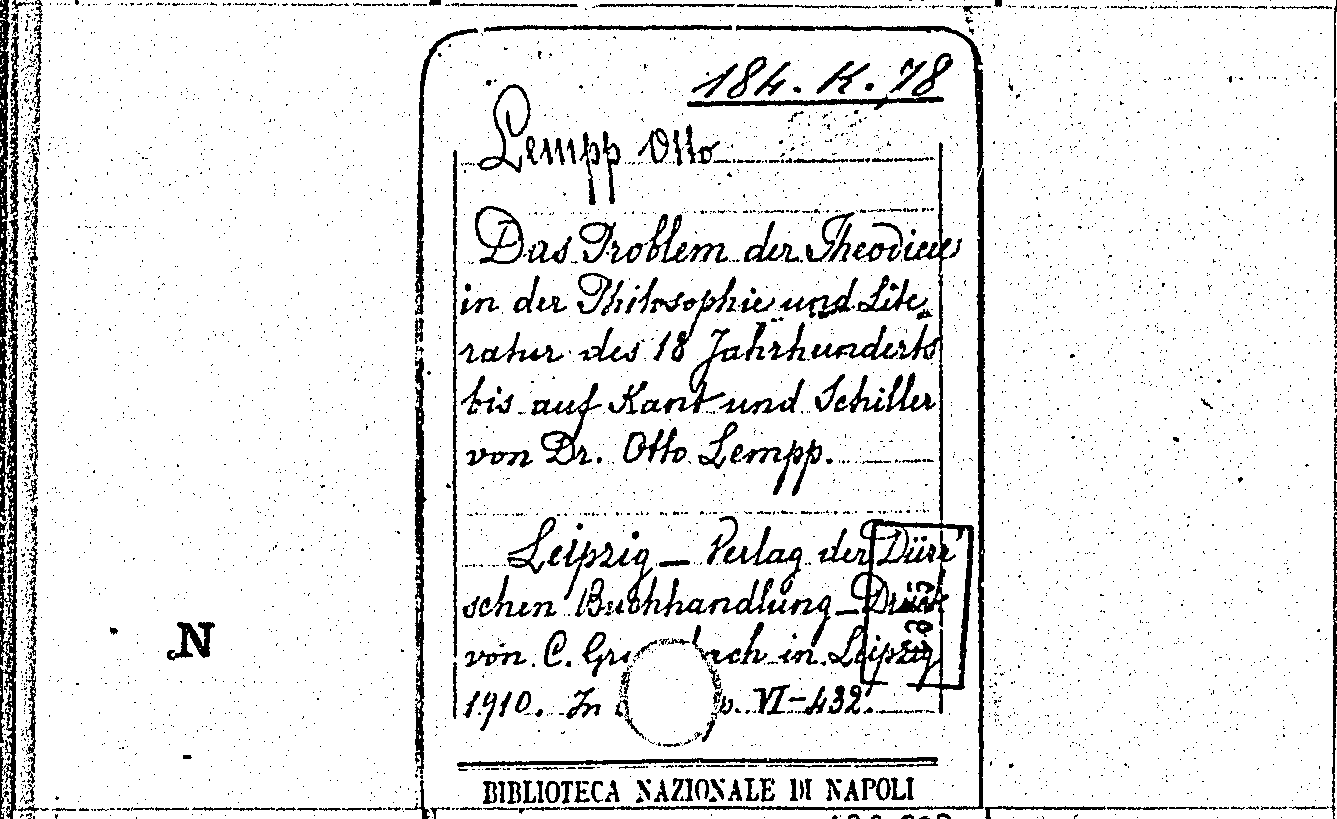 184.K.78
Lempp Otto
Das Problem der Theodicee
in der Philosophie und Lite-
ratur des 18 Jahrhunderts
bis auf Kant und Schiller
von Dr. Otto Lempp.
Leipzig – Verlag der Dürr'
schen Buchhandlung – Druck
von C. in Leipzig
1910. In VI-432.
N
BIBLIOTECA NAZIONALE DI NAPOLI